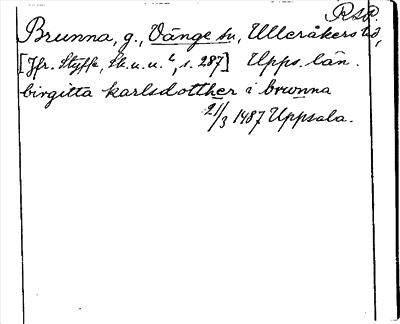 RSP.
Brunna, g., Vänge sn, Ulleråkers hd,
[Jfr. Styffe, Sk. u. u.², s. 287] Upps. län.
birgitta karlsdotther i brwnna
21/3 1487 Uppsala.